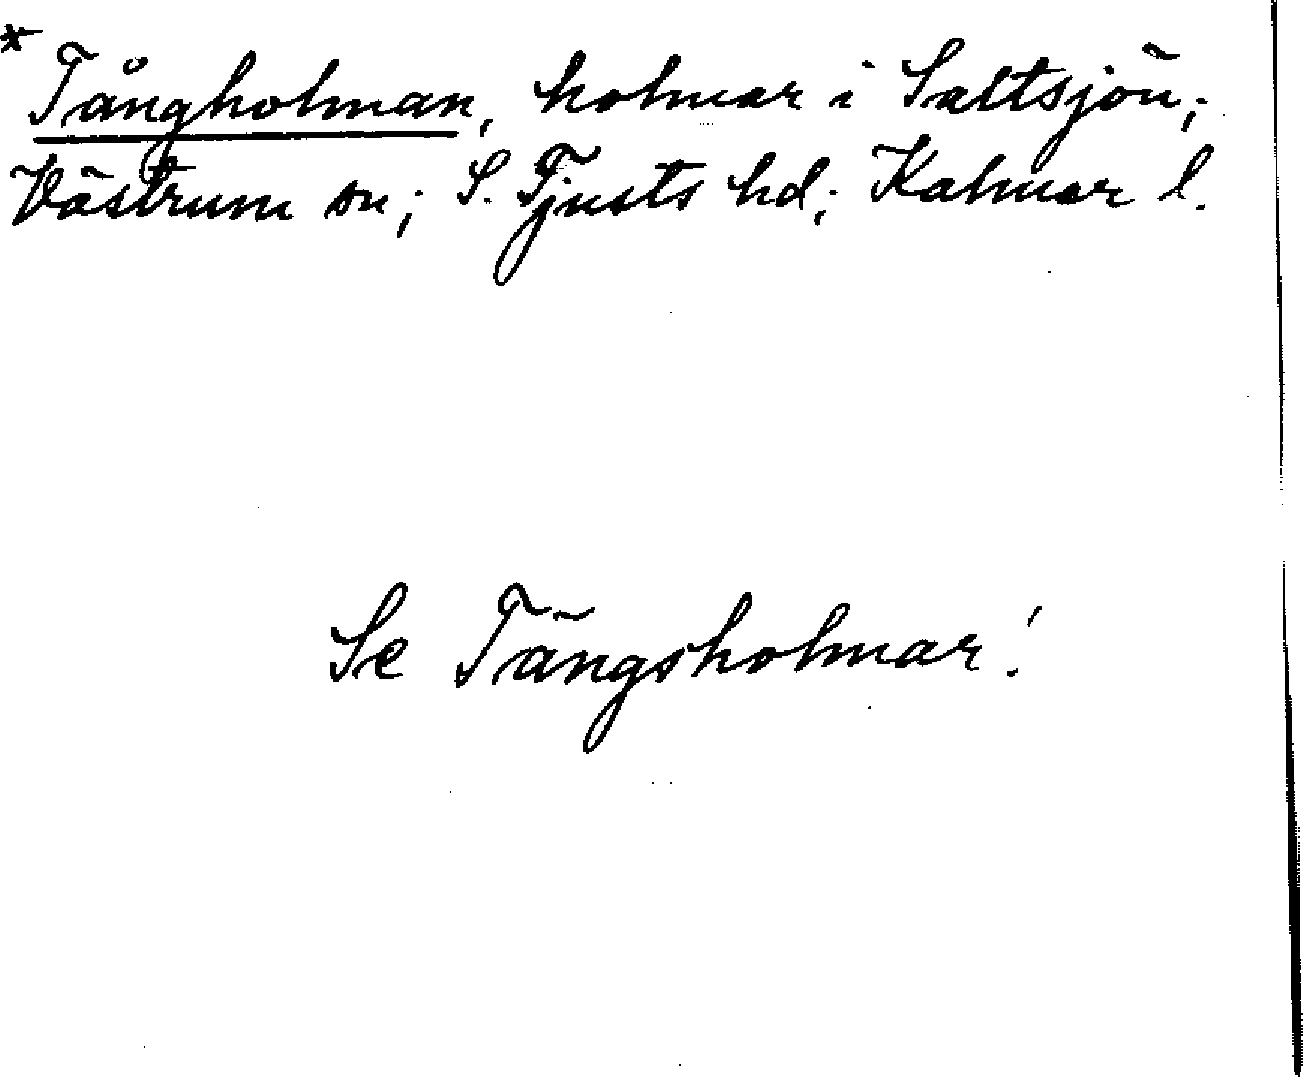 * Tångholman, holmar i Saltsjön;
Västrum sn; S. Tjusts hd; Kalmar l.
Se Tängsholmar!